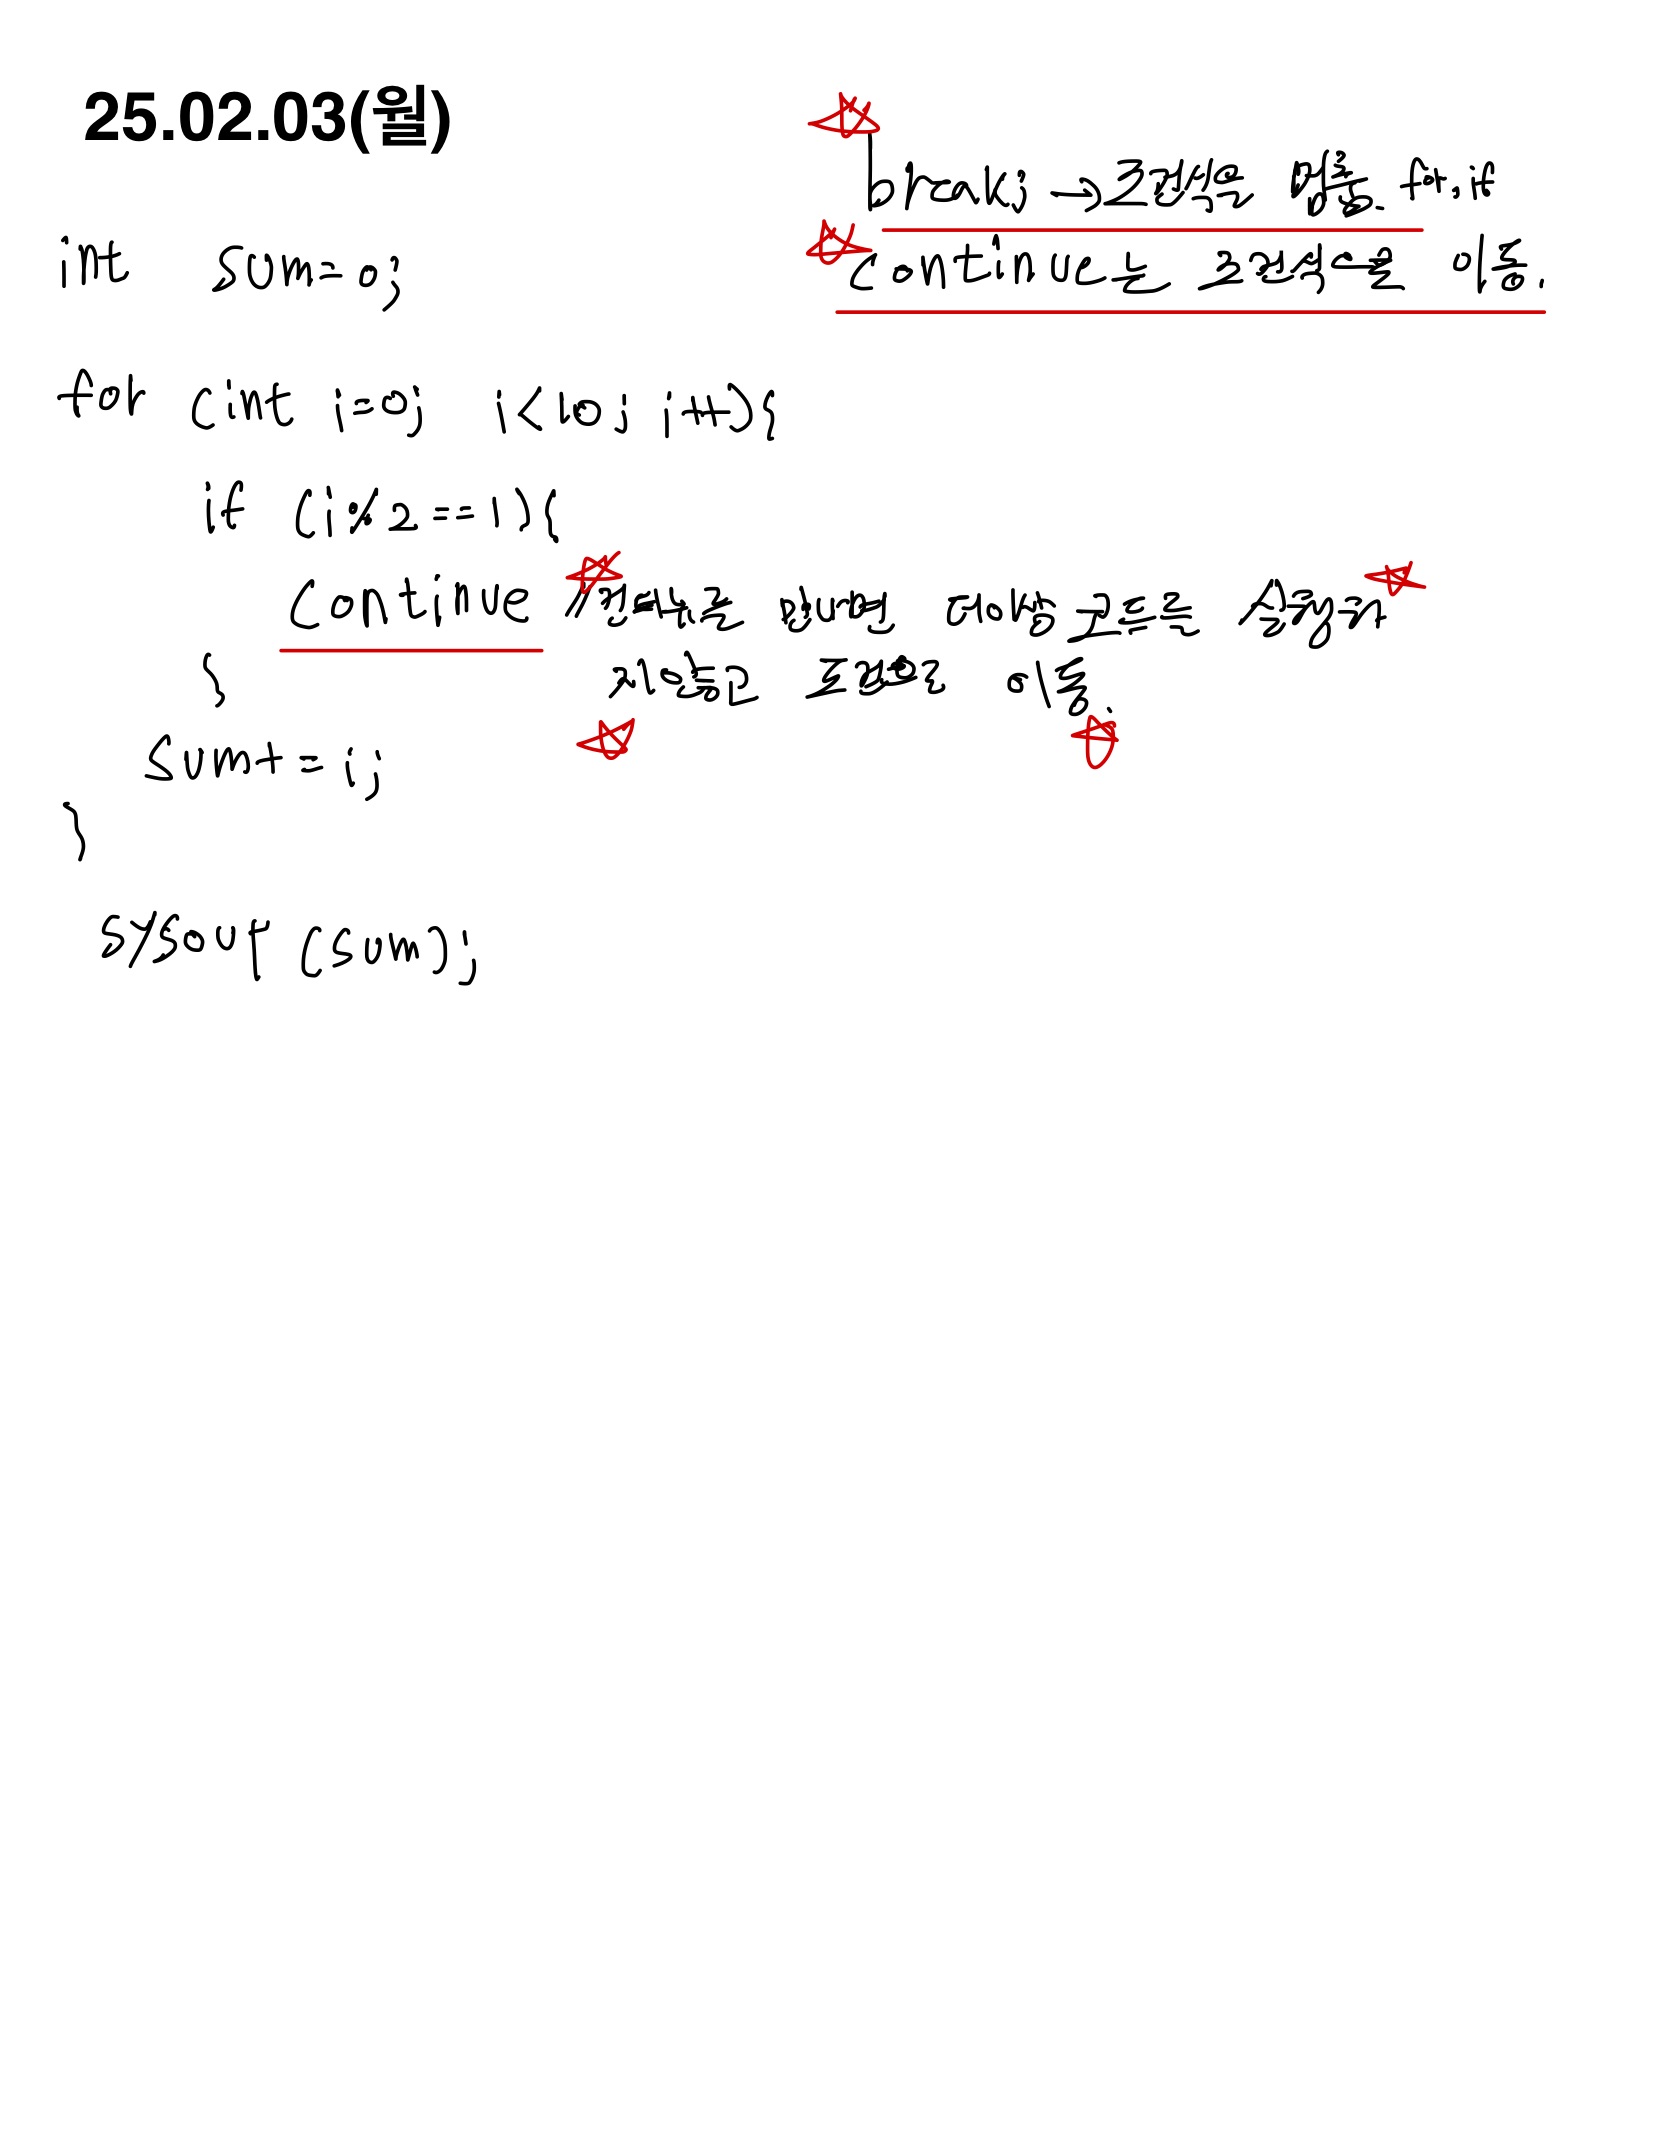 25.02.03(월)
break; → 조건식을 멈춤. for, if
continue는 조건식으로 이동.
int sum=0;
for (int i=0; i<10; i++){
if (i%2==1){
continue // 만나면 더이상 코드를 실행하
지않고 조건으로 이동.
}
sum+=i;
}
sysout (sum);